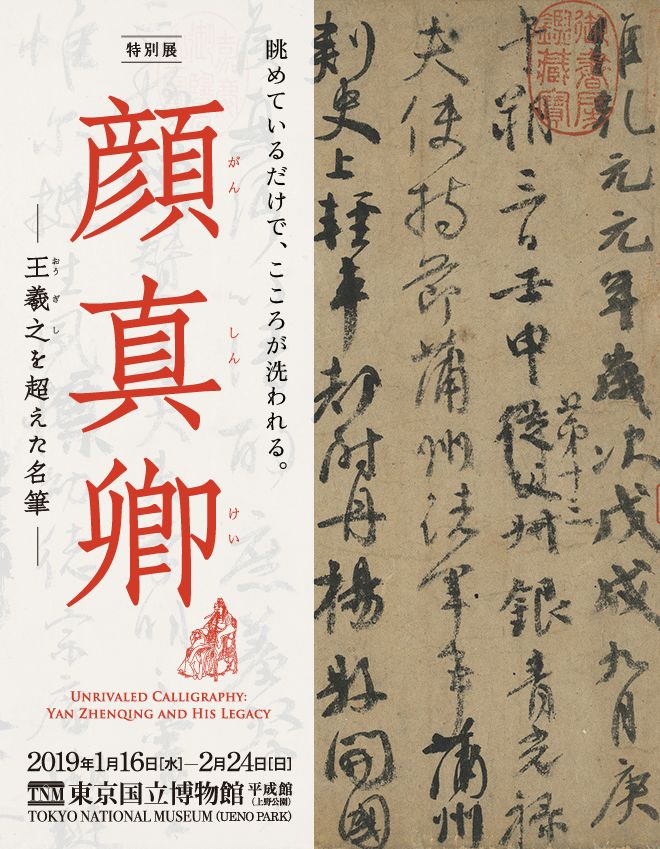 特別展
眺めているだけで、こころが洗われる。
顔真卿
がん
しん
けい
王羲之を超えた名筆
おう
ぎ
し
UNRIVALED CALLIGRAPHY:
YAN ZHENQING AND HIS LEGACY
2019年1月16日[水]—2月24日[日]
TNM 東京国立博物館 平成館
(上野公園)
TOKYO NATIONAL MUSEUM (UENO PARK)
御書房鑑藏寶
維乾元元年歲次戊戌九月庚
午朔三日壬申
第十三
銀青光祿
夫使持節蒲州諸軍事蒲州
刺史上輕車都尉丹楊縣開國